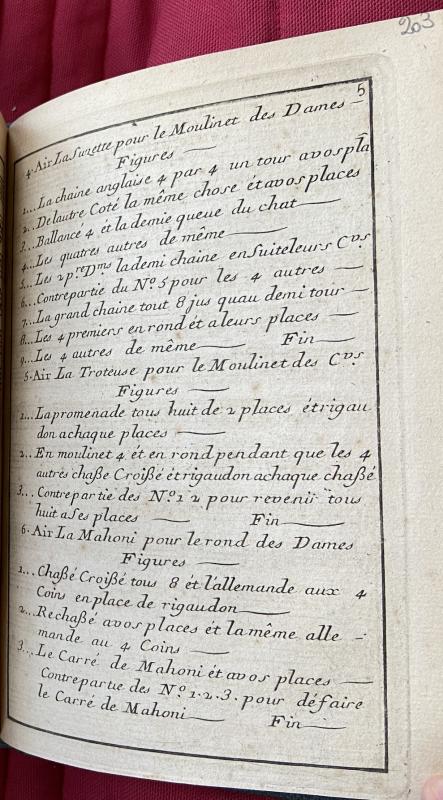 203
5
4. Air La Suzette pour le Moulinet des Dames —
Figures —
1... La chaine anglaise 4 par 4 un tour avos pla
2... De lautre Coté la même chose ét avos places
3... Ballancé 4 ét la demie queue du chat —
4... Les quatres autres de même —
5... Les 2 prs Dms la demi chaine ensuite leurs Cvs.
6... Contrepartie du No. 5 pour les 4 autres —
7... La grand chaine tout 8 jus quau demi tour —
8... Les 4 premiers en rond ét a leurs places —
9... Les 4 autres de même — Fin —
5. Air La Troteuse pour le Moulinet des Cvs.
Figures —
1... La promenade tous huit de 2 places ét rigau
don achaque places —
2... En moulinet 4 ét en rond pendant que les 4
autres chaßé Croißé ét rigaudon achaque chaßé
3... Contrepartie des No. 1 2 pour revenir tous
huit a ses places — Fin —
6. Air La Mahoni pour le rond des Dames
Figures —
1... Chaßé Croißé tous 8 ét l'allemande aux 4
Coins en place de rigaudon —
2... Rechaßé avos places ét la même alle -
mande au 4 Coins —
3... Le Carré de Mahoni ét avos places —
Contrepartie des No. 1. 2. 3. pour défaire
le Carré de Mahoni — Fin —